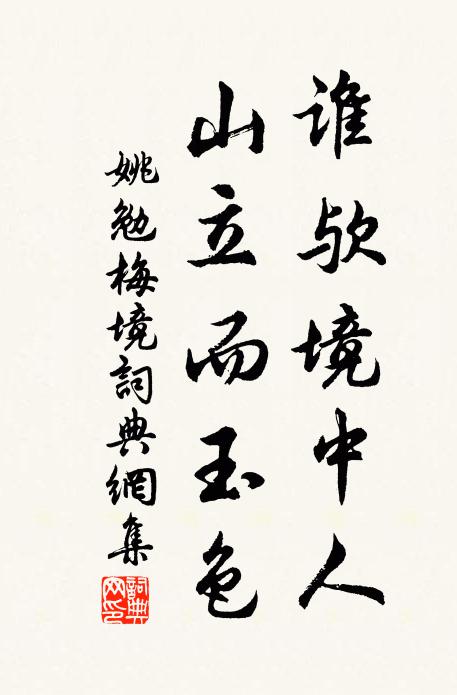 谁欤境中人
山立而玉色
姚勉梅境詞典網集
詞典网印